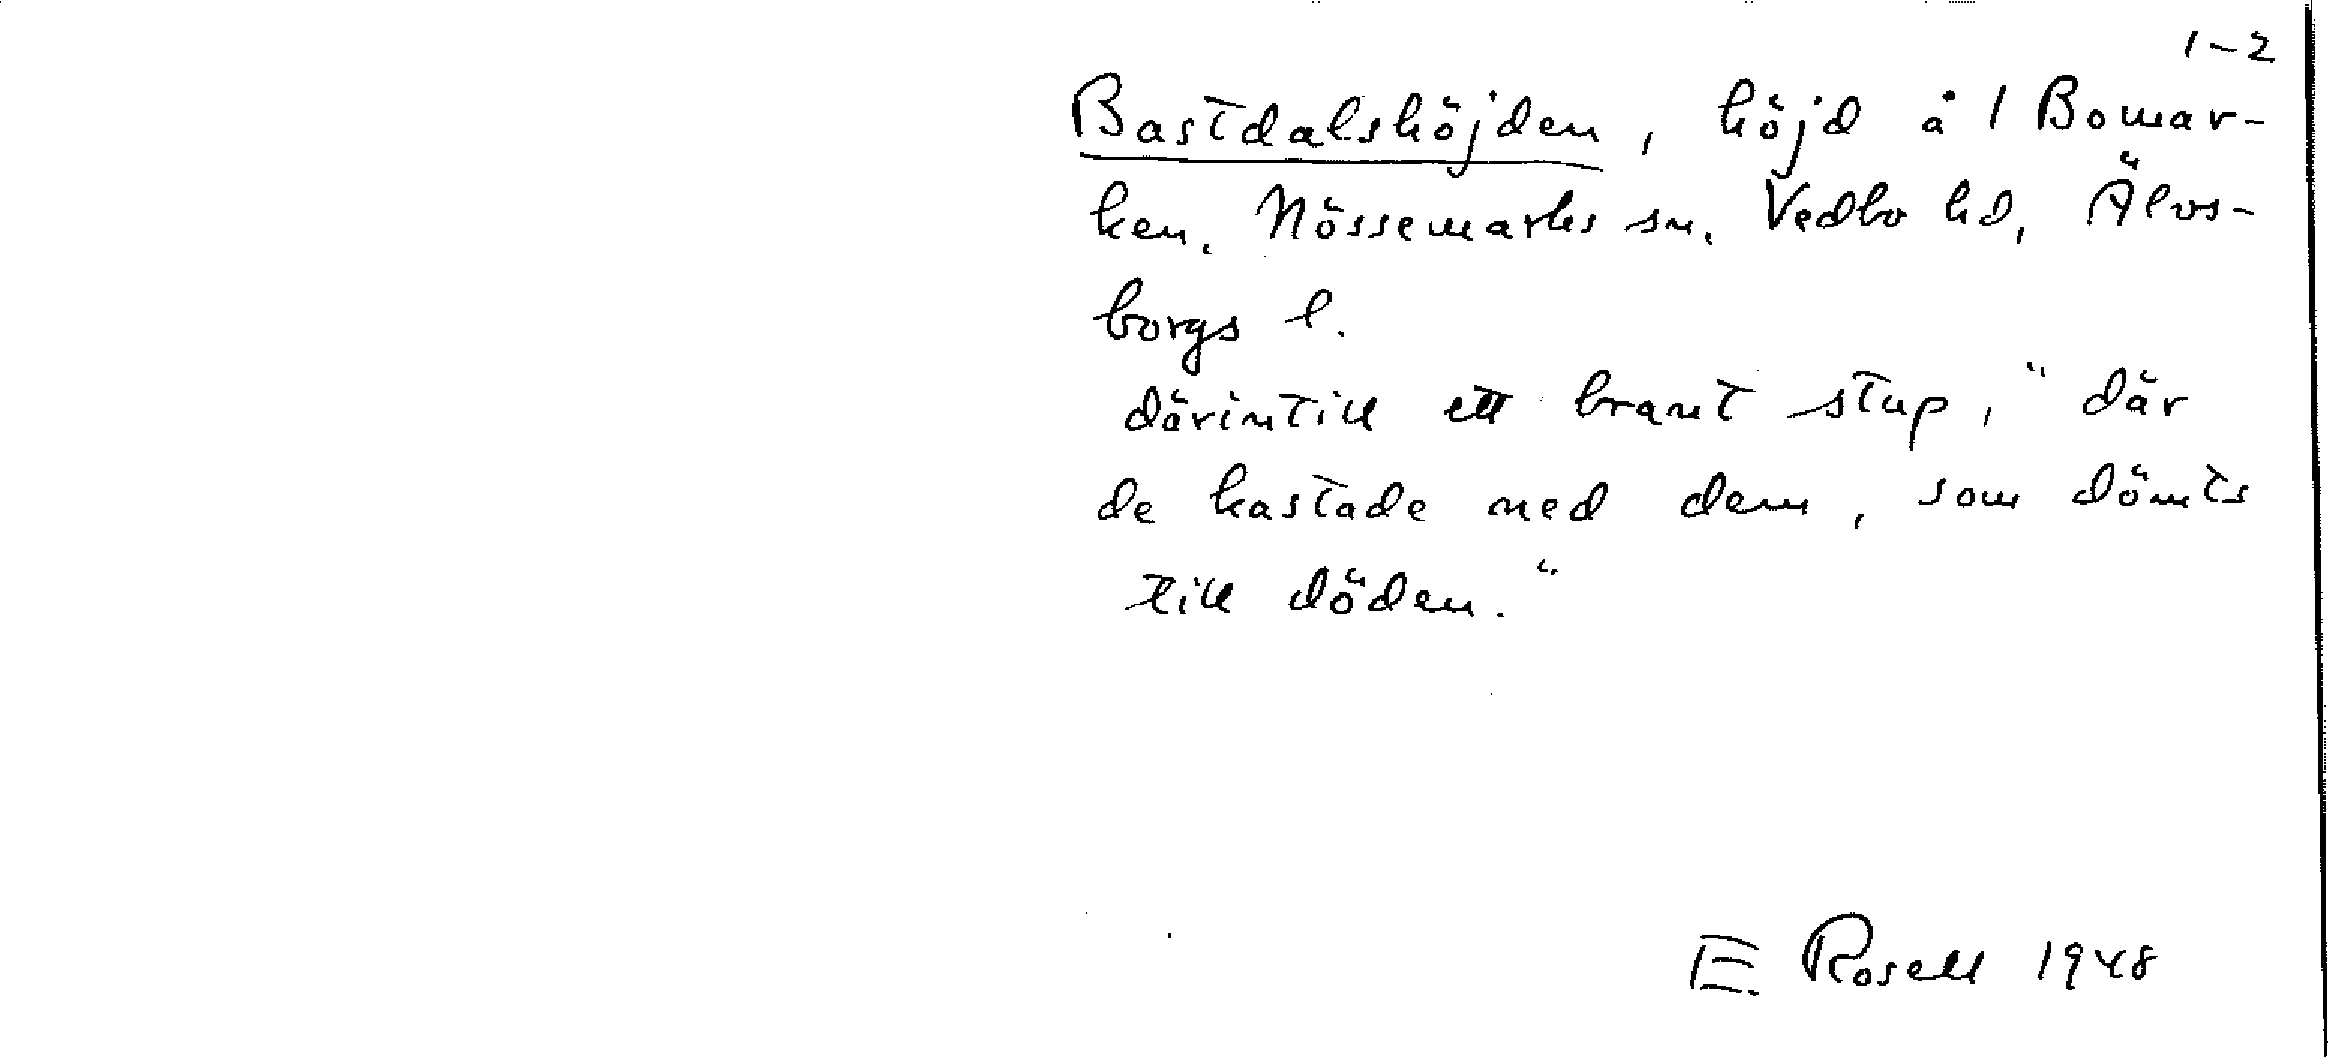 1-2
Bastdalshöjden, höjd å 1 Bomar-
ken. Nössemarks sn. Vedbo hd, Älvs-
borgs l.
därintill ett brant stup, "där
de kastade ned dem, som dömts
till döden."
E. Rosell 1948